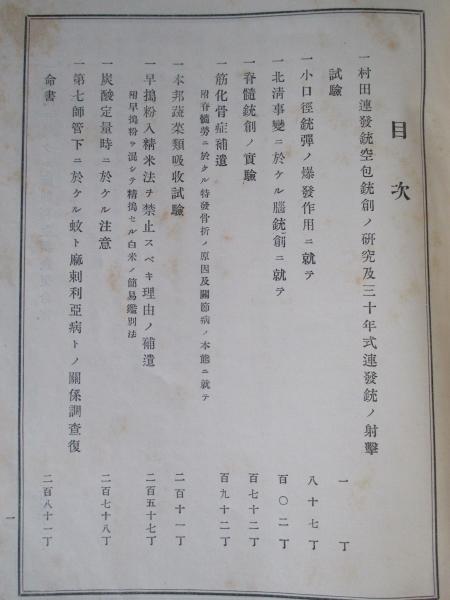 目次
一村田連發銃空包銃創ノ硏究及三十年式連發銃ノ射擊
試驗 一丁
一小口徑銃彈ノ爆發作用ニ就テ 八十七丁
一北淸事變ニ於ケル腦銃創ニ就テ 百〇二丁
一脊髓銃創ノ實驗 百七十二丁
一筋化骨症補遺 百九十二丁
附脊髓勞ニ於ケル特發骨折ノ原因及關節病ノ本態ニ就テ
一本邦蔬菜類吸收試驗 二百十一丁
一早搗粉入精米法ヲ禁止スベキ理由ノ補遺 二百五十七丁
附早搗粉ヲ混シテ精搗セル白米ノ簡易鑑別法
一炭酸定量時ニ於ケル注意 二百七十八丁
一第七師管下ニ於ケル蚊ト麻剌利亞病トノ關係調査復
命書 二百八十一丁
一